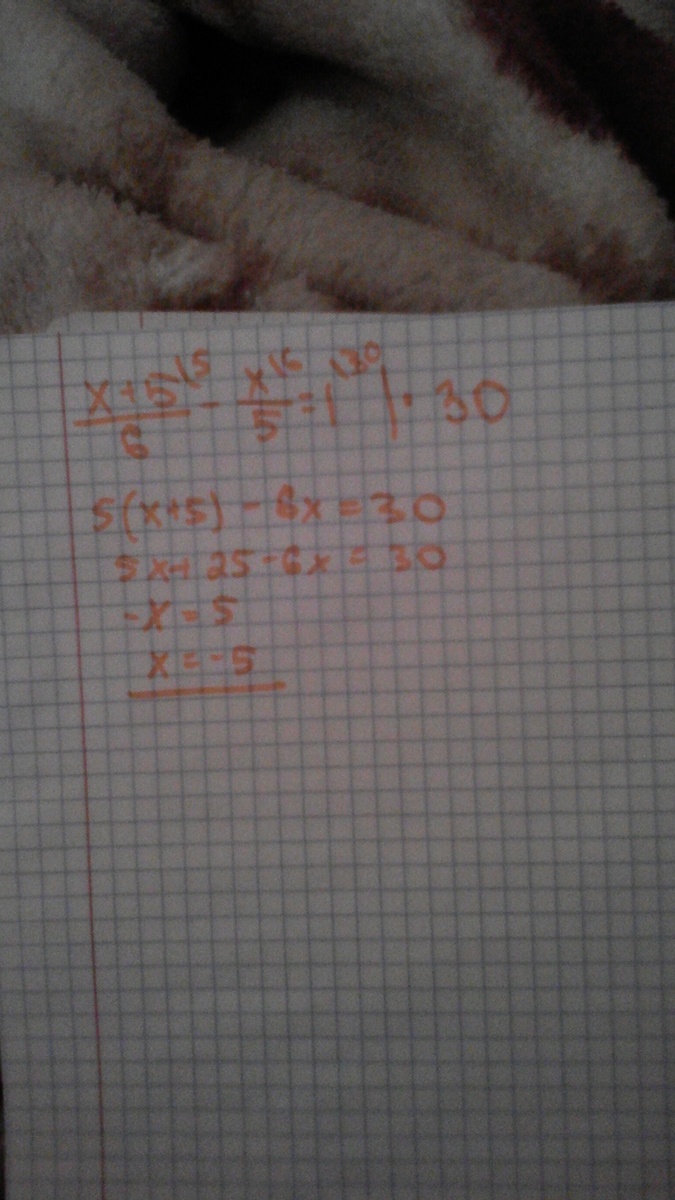 (x+5)\5/6 - x\6/5 = 1\30 | · 30
5(x+5) - 6x = 30
5x + 25 - 6x = 30
-x = 5
x = -5